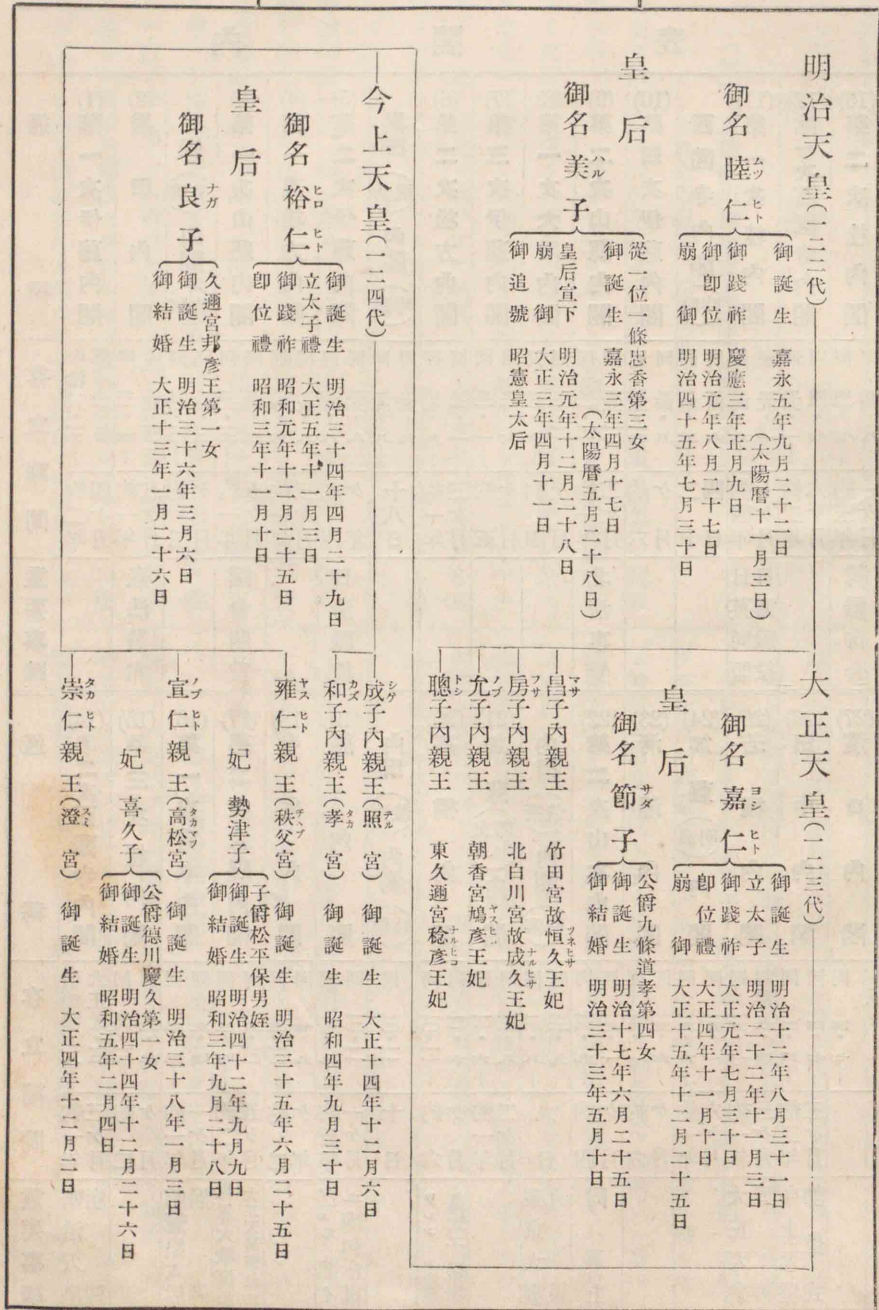 明治天皇(一二二代)
御名 睦仁
ムツ ヒト
御誕生 嘉永五年九月二十二日
(太陽曆十一月三日)
御踐祚 慶應三年正月九日
御卽位 明治元年八月二十七日
崩御 明治四十五年七月三十日
皇后
御名 美子
ハル
從一位一條忠香第三女
御誕生 嘉永三年四月十七日
(太陽曆五月二十八日)
皇后宣下 明治元年十二月二十八日
崩御 大正三年四月十一日
御追號 昭憲皇太后
大正天皇(一二三代)
御名 嘉仁
ヨシ ヒト
御誕生 明治十二年八月三十一日
立太子 明治二十二年十一月三日
御踐祚 大正元年七月三十日
卽位禮 大正四年十一月十日
崩御 大正十五年十二月二十五日
皇后
御名 節子
サダ
公爵九條道孝第四女
御誕生 明治十七年六月二十五日
御結婚 明治三十三年五月十日
昌子內親王 竹田宮故恒久王妃
マサ ツネヒサ
房子內親王 北白川宮故成久王妃
フサ ナルヒサ
允子內親王 朝香宮鳩彥王妃
ノブ ヤスヒコ
聰子內親王 東久邇宮稔彥王妃
トシ ナルヒコ
今上天皇(一二四代)
御名 裕仁
ヒロ ヒト
御誕生 明治三十四年四月二十九日
立太子禮 大正五年十一月三日
御踐祚 昭和元年十二月二十五日
卽位禮 昭和三年十一月十日
皇后
御名 良子
ナガ
久邇宮邦彥王第一女
御誕生 明治三十六年三月六日
御結婚 大正十三年一月二十六日
成子內親王(照宮) 御誕生 大正十四年十二月六日
シゲ テル
和子內親王(孝宮) 御誕生 昭和四年九月三十日
カズ タカ
雍仁親王(秩父宮) 御誕生 明治三十五年六月二十五日
ヤス ヒト チヽブ
妃 勢津子
子爵松平保男姪
御誕生 明治四十二年九月九日
御結婚 昭和三年九月二十八日
宣仁親王(高松宮) 御誕生 明治三十八年一月三日
ノブ ヒト タカマツ
妃 喜久子
公爵德川慶久第一女
御誕生 明治四十四年十二月二十六日
御結婚 昭和五年二月四日
崇仁親王(澄宮) 御誕生 大正四年十二月二日
タカ ヒト スミ